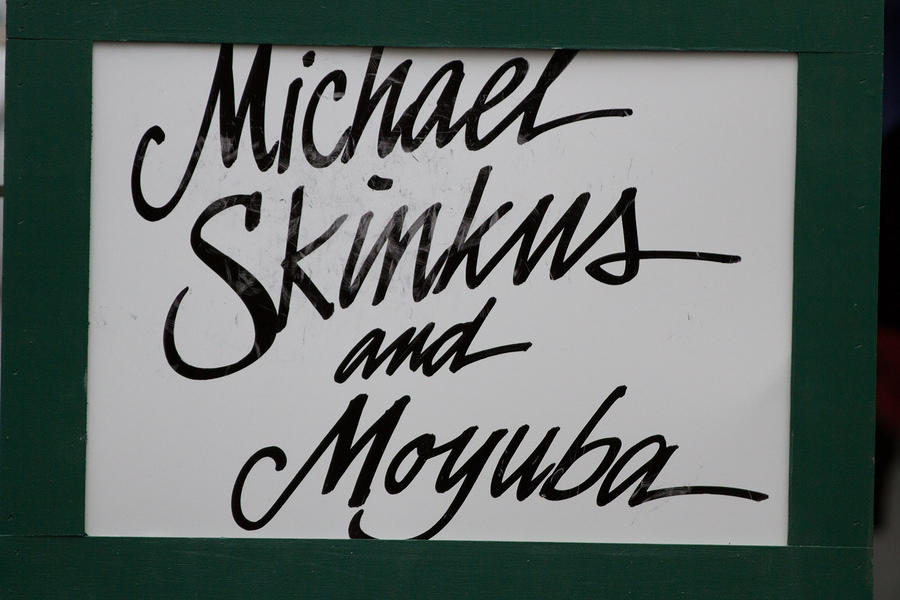 Michael
Skinkus
and
Moyuba